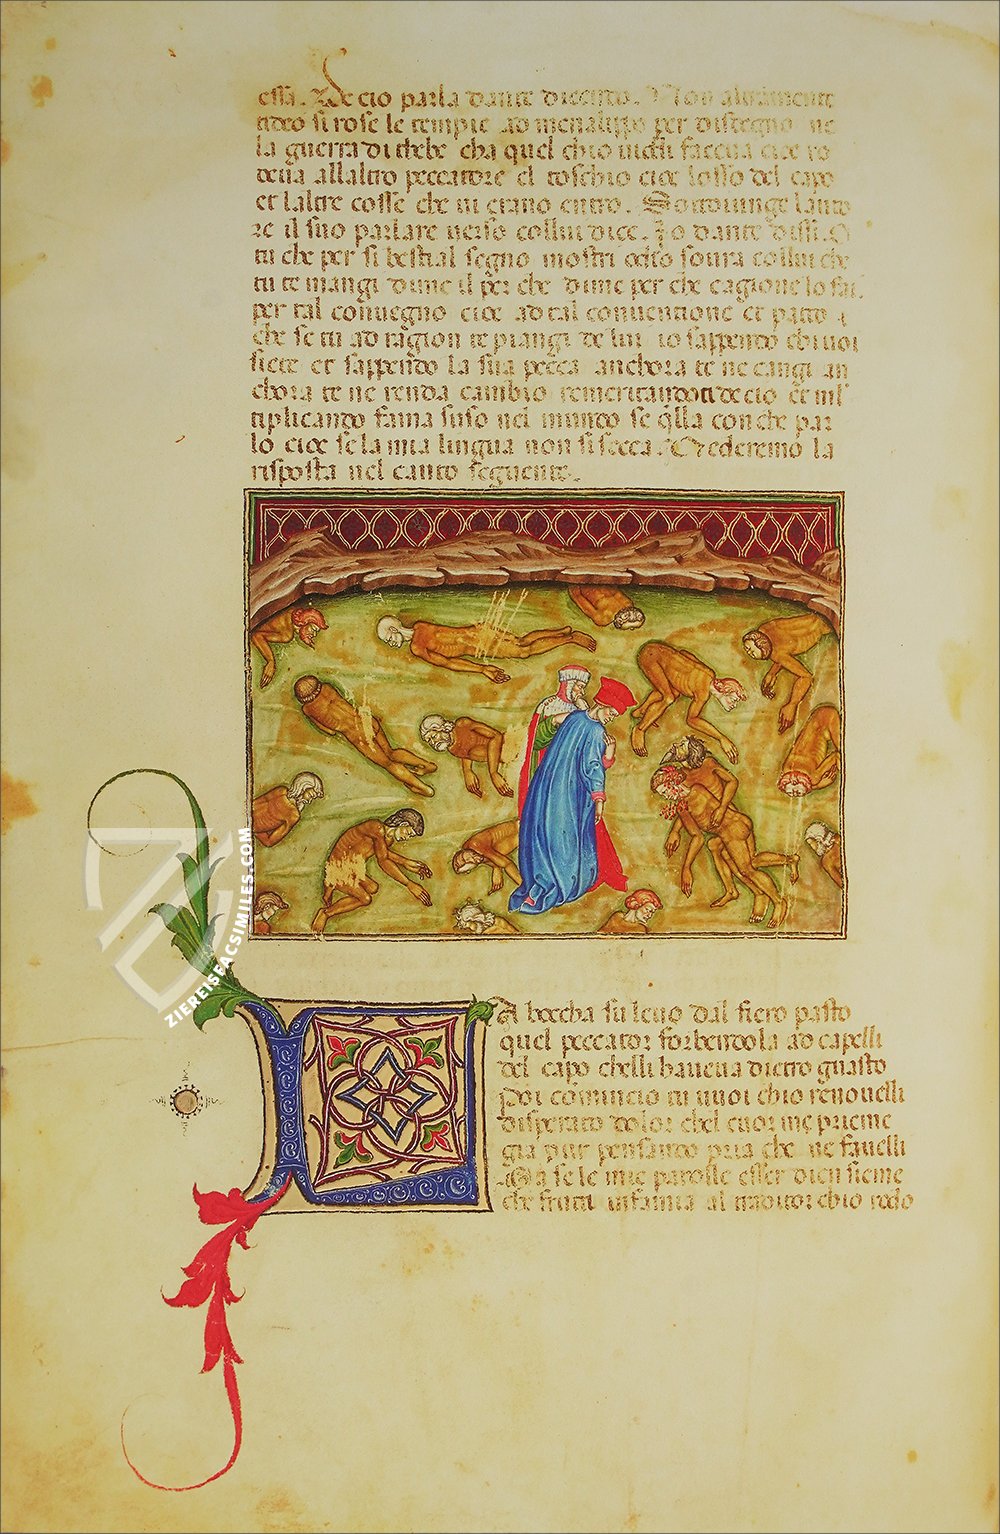 essa. De cio parla dante dicendo. Non altrimente
tideo si rose le tempie ad menalippo per disdegno ne
la guerra di thebe cha quel chio viddi faceva cioe ro
deva allaltro peccatore el teschio cioe losso del capo
et laltre cosse che vi erano entro. Sottoiunge lauto
re il suo parlare verso collui dice. Io dante dissi. O
tu che per si bestial segno mostri odio sovra collui che
tu te mangi dime il per che dime per che cagione lo fai
per tal convegno cioe ad tal conventione et patto
che se tu ad ragion te piangi de lui io sappendo chi voi
siete et sappendo la sua pecca anchora te ne cangi an
chora te ne renda cambio remeritandoti de cio et ml
tiplicando fama suso nel mundo se qlla con che par
lo cioe se la mia lingua non si secca. Et vederemo la
risposta nel canto seguente.
LA boccha su levo dal fiero pasto
quel peccator forbendola ad capelli
del capo chelli haveva dietro guasto
Poi comincio tu vuoi chio renovelli
disperato dolor chel cuor me prieme
gia pur pensando pria che ne favelli
Ma se le mie parolle esser dien sieme
che frutti infamia al traditor chio rodo
ZIEREISFACSIMILES.COM